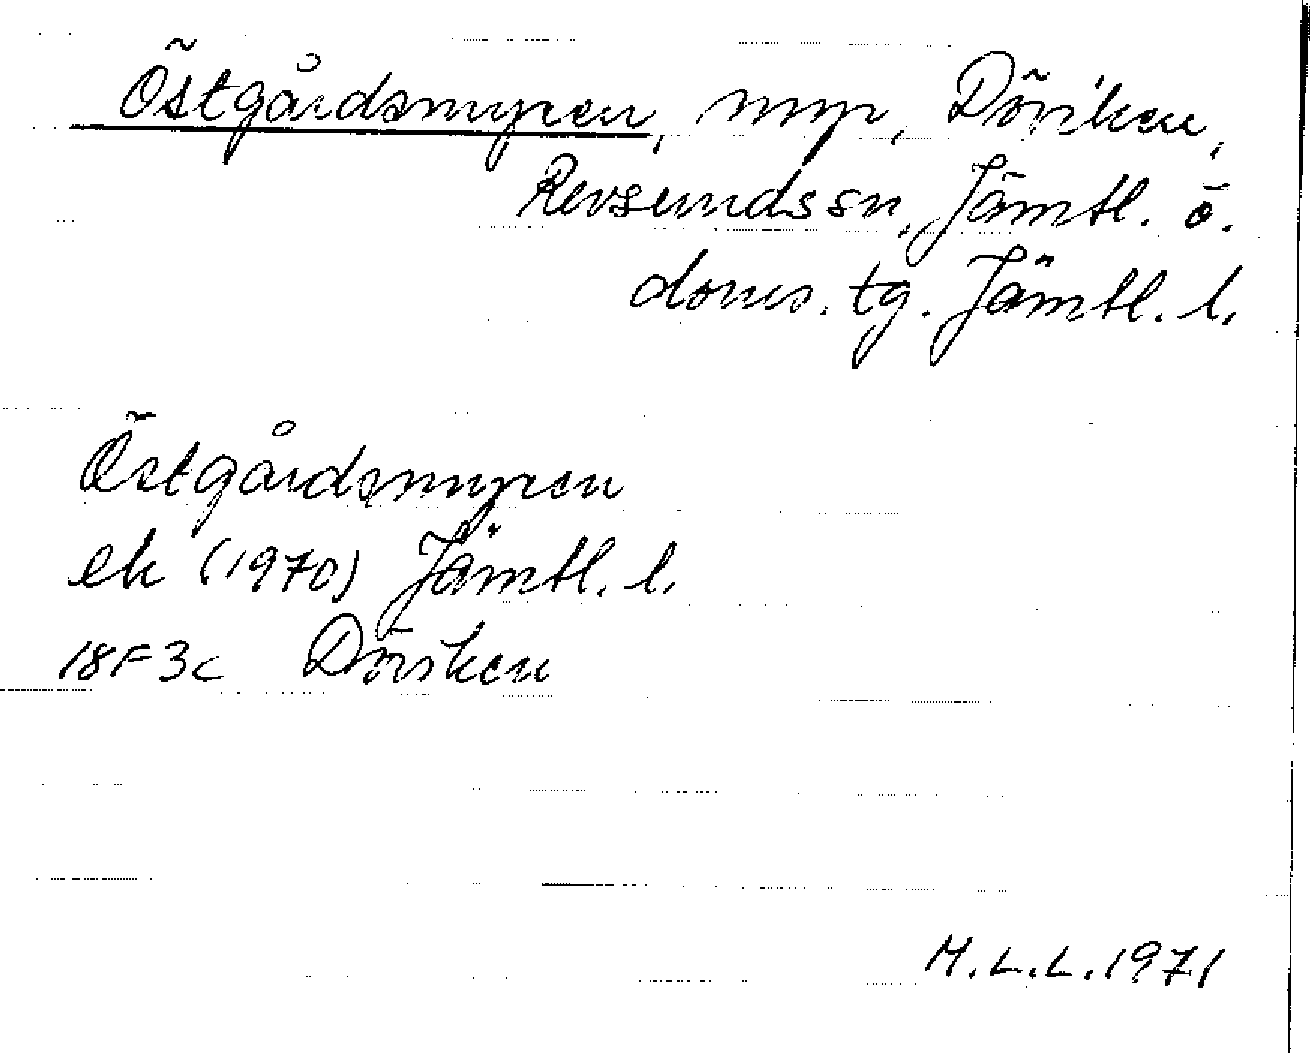 Östgårdsmyren, myr, Döviken,
Revsundssn, Jämtl. ö.
doms. tg. Jämtl. l.
Östgårdsmyren
ek (1970) Jämtl. l.
18F3c Döviken
M.L.L. 1971